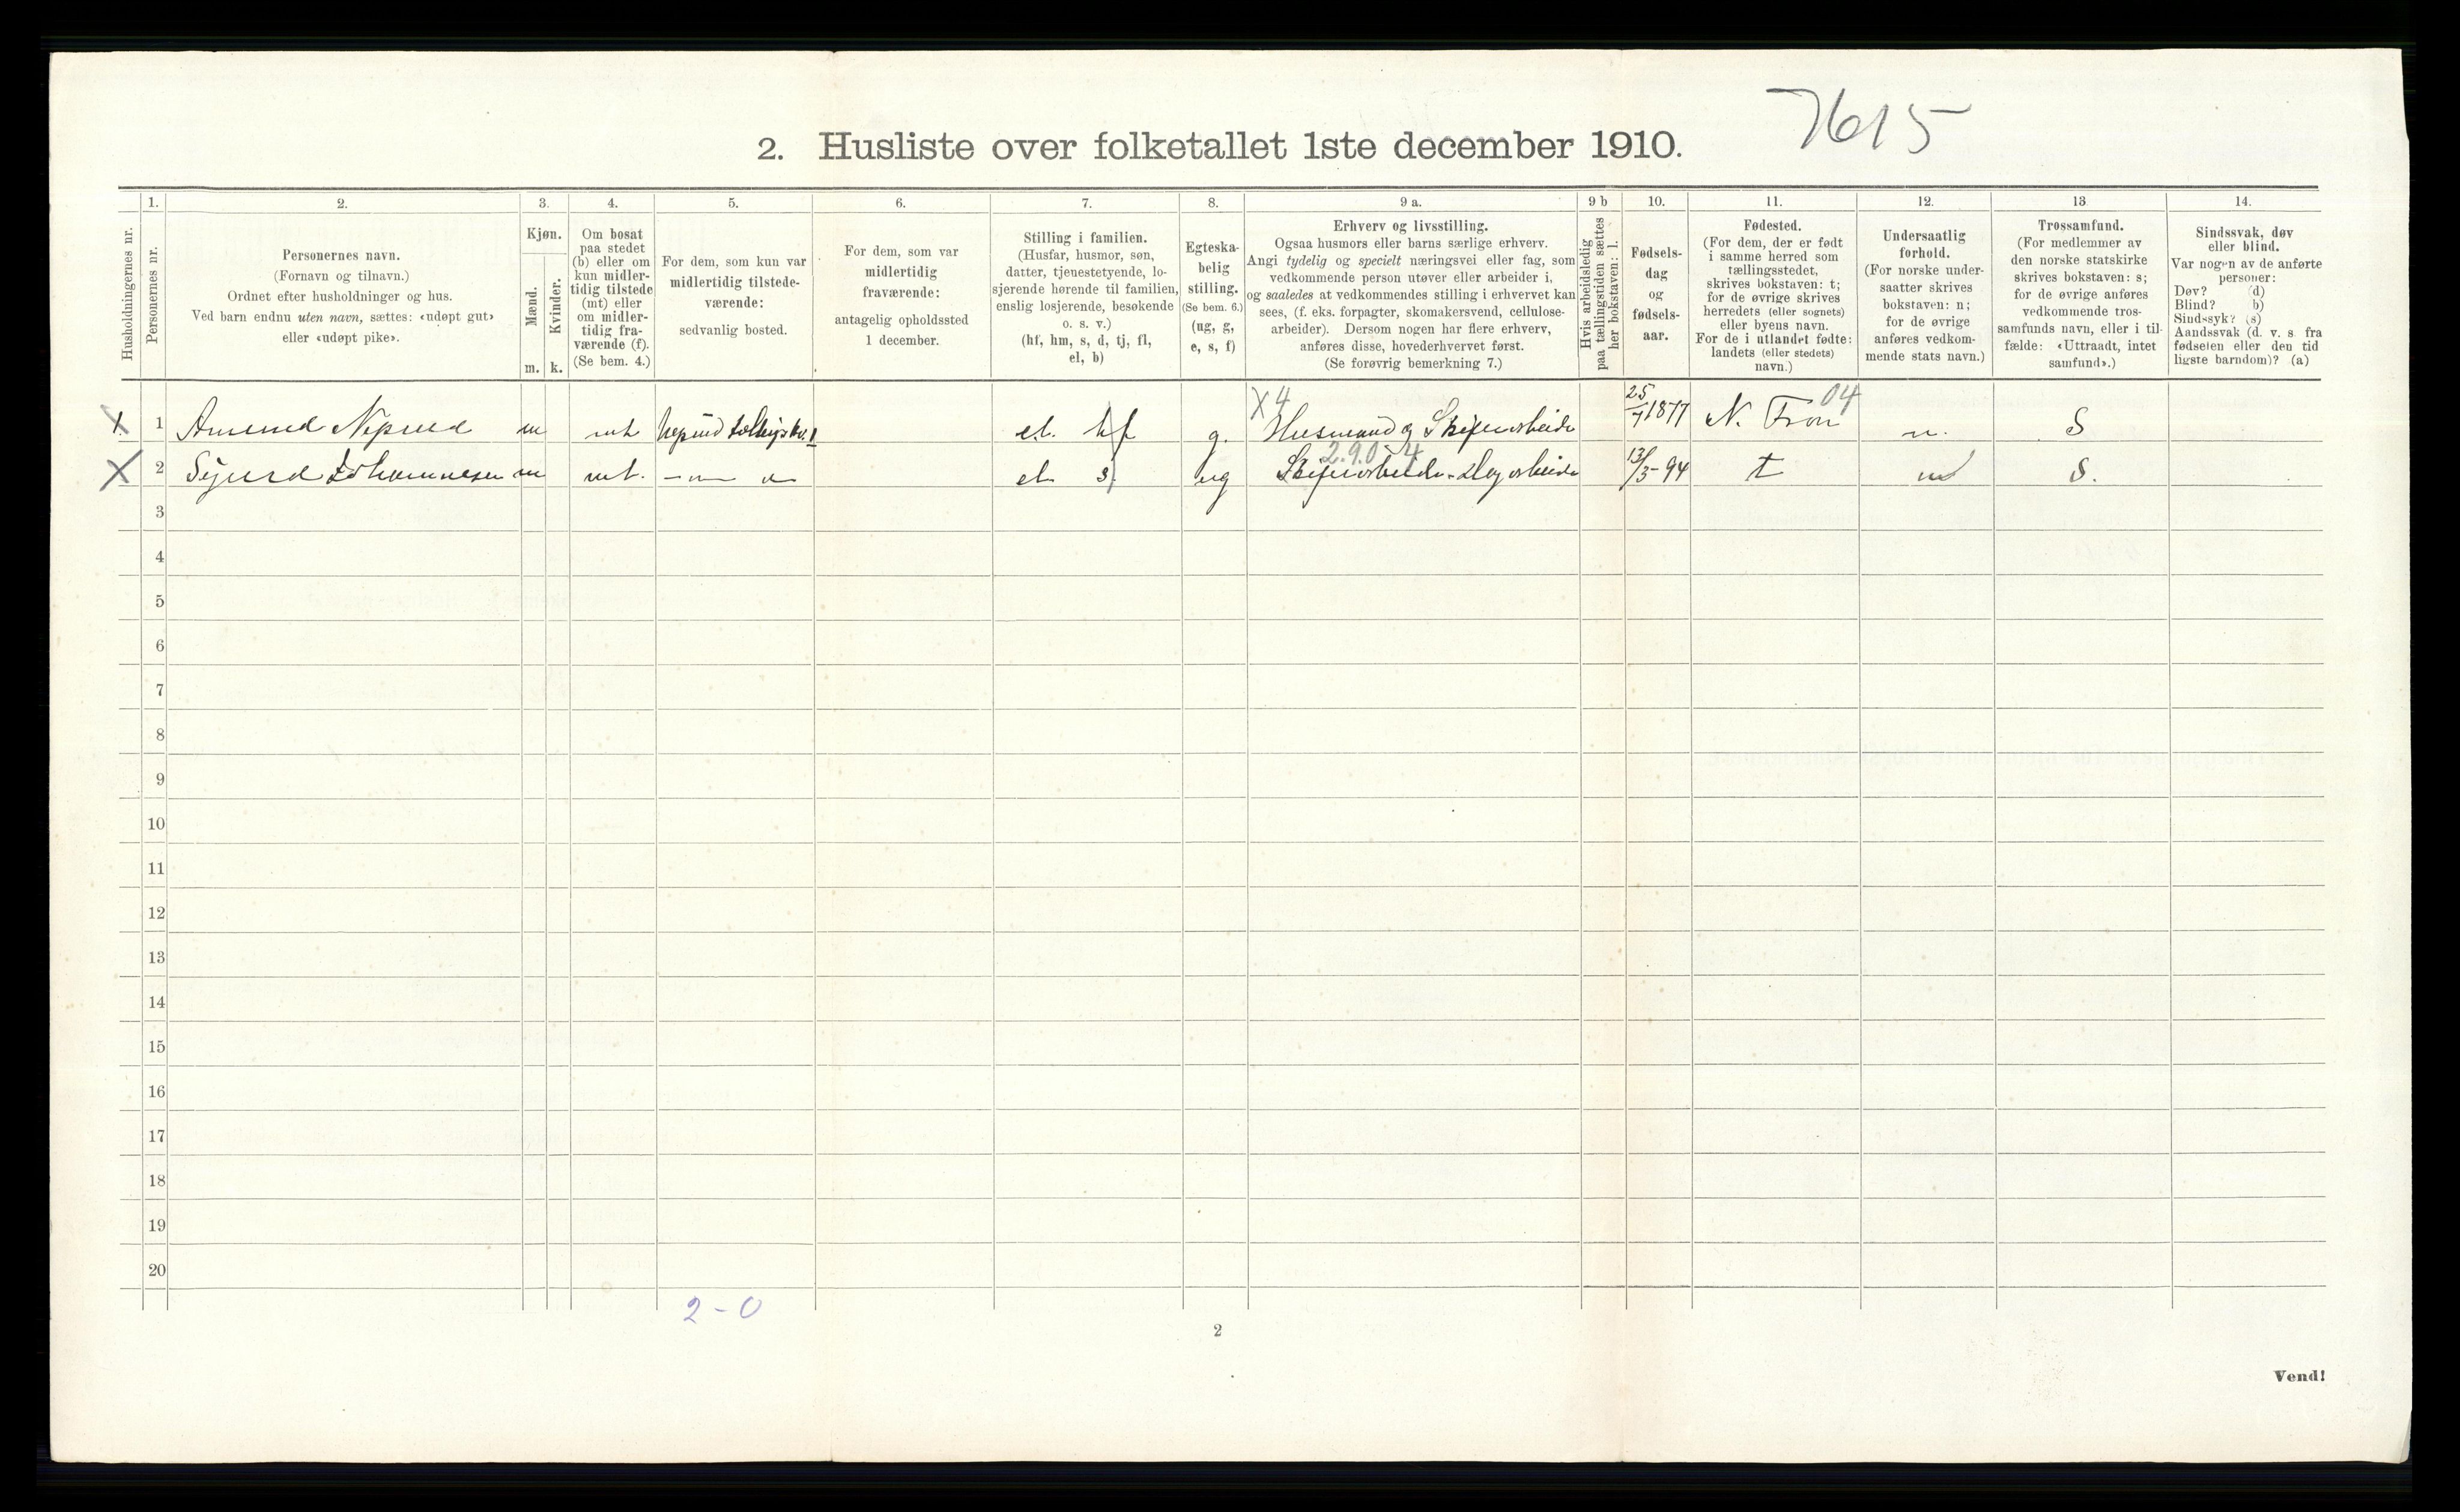 7615
2. Husliste over folketallet 1ste december 1910.
Husholdningernes nr.
1.
Personernes nr.
2.
Personernes navn.
(Fornavn og tilnavn.)
Ordnet efter husholdninger og hus.
Ved barn endnu uten navn, sættes: «udøpt gut»
eller «udøpt pike».
3.
Kjøn.
Mænd.
Kvinder.
m. k.
4.
Om bosat
paa stedet
(b) eller om
kun midler-
tidig tilstede
(mt) eller
om midler-
tidig fra-
værende (f).
(Se bem. 4.)
5.
For dem, som kun var
midlertidig tilstede-
værende:
sedvanlig bosted.
6.
For dem, som var
midlertidig
fraværende:
antagelig opholdssted
1 december.
7.
Stilling i familien.
(Husfar, husmor, søn,
datter, tjenestetyende, lo-
sjerende hørende til familien,
enslig losjerende, besøkende
o. s. v.)
(hf, hm, s, d, tj, fl,
el, b)
8.
Egteska-
belig
stilling.
(Se bem. 6.)
(ug, g,
e, s, f)
9 a.
Erhverv og livsstilling.
Ogsaa husmors eller barns særlige erhverv.
Angi tydelig og specielt næringsvei eller fag, som
vedkommende person utøver eller arbeider i,
og saaledes at vedkommendes stilling i erhvervet kan
sees, (f. eks. forpagter, skomakersvend, cellulose-
arbeider). Dersom nogen har flere erhverv,
anføres disse, hovederhvervet først.
(Se forøvrig bemerkning 7.)
9 b
Hvis arbeidsledig
paa tællingstiden sættes
her bokstaven: l.
10.
Fødsels-
dag
og
fødsels-
aar.
11.
Fødested.
(For dem, der er født
i samme herred som
tællingsstedet,
skrives bokstaven: t;
for de øvrige skrives
herredets (eller sognets)
eller byens navn.
For de i utlandet fødte:
landets (eller stedets)
navn.)
12.
Undersaatlig
forhold.
(For norske under-
saatter skrives
bokstaven: n;
for de øvrige
anføres vedkom-
mende stats navn.)
13
Trossamfund.
(For medlemmer av
den norske statskirke
skrives bokstaven: s;
for de øvrige anføres
vedkommende tros-
samfunds navn, eller i til-
fælde: «Uttraadt, intet
samfund».)
14.
Sindssvak, døv
eller blind.
Var nogen av de anførte
personer:
Døv? (d)
Blind? b)
Sindssyk? (s)
Aandssvak (d. v. s. fra
fødselen eller den tid
ligste barndom)? (a)
X 4 04
X 1 Amund Neprud m mt el. hf g. Husmand og Skiferarbeider 25/7 1877 N. Fron n. S
2.9.0 4
X 2 Sigurd Johannesen m mt. el s ug Skiferarbeider - Dagarbeider 13/5-94 t n S.
3
4
5
6
7
8
9
10
11
12
13
14
15
16
17
18
19
20
2 - 0
2
Vend!